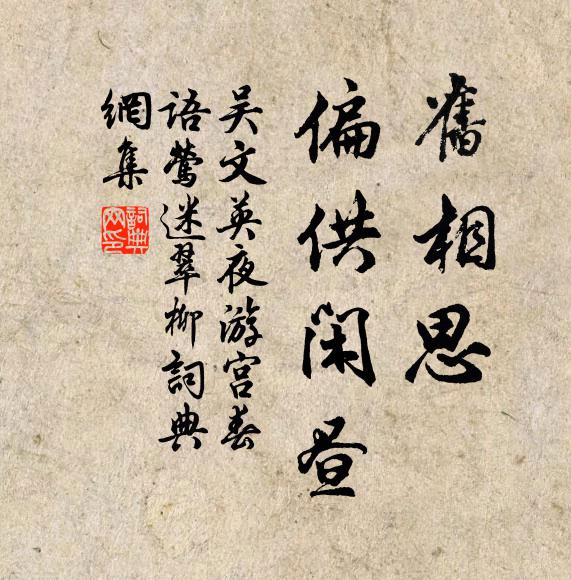 舊相思
偏供閑昼
吴文英夜游宫春
语莺迷翠柳詞典
網集
詞典
网印